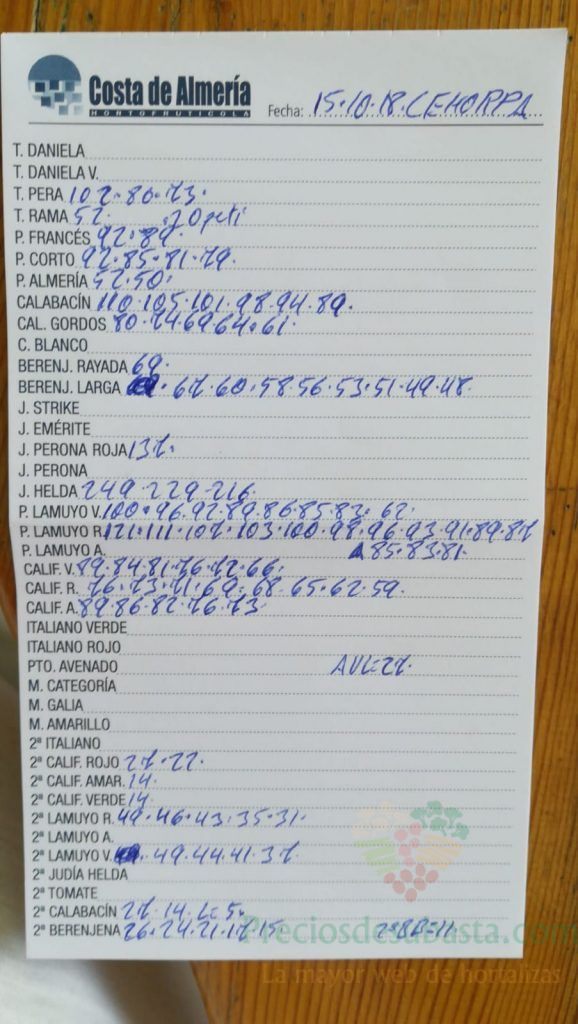 Costa de Almería
HORTOFRUTICOLA
Fecha: 15.10.18. CEHORPA
T. DANIELA
T. DANIELA V.
T. PERA 107.80.73.
T. RAMA 52.
P. FRANCÉS 92.89.
P. CORTO 92.85.81.79.
P. ALMERÍA 52.50.
CALABACÍN 110.105.101.98.94.89.
CAL. GORDOS 80.74.69.64.61.
C. BLANCO
BERENJ. RAYADA 69.
BERENJ. LARGA 67.60.58.56.53.51.49.48.
J. STRIKE
J. EMÉRITE
J. PERONA ROJA 137.
J. PERONA
J. HELDA 249.229.216.
P. LAMUYO V. 100.96.92.89.86.85.83.62.
P. LAMUYO R. 121.111.107.103.100.98.96.93.91.89.87
P. LAMUYO A. 85.83.81.
CALIF. V. 89.84.81.76.72.66.
CALIF. R. 76.73.71.69.68.65.62.59.
CALIF. A. 89.86.82.76.73.
ITALIANO VERDE
ITALIANO ROJO
PTO. AVENADO AVL=27.
M. CATEGORÍA
M. GALIA
M. AMARILLO
2ª ITALIANO
2ª CALIF. ROJO 27.22.
2ª CALIF. AMAR. 14.
2ª CALIF. VERDE 14.
2ª LAMUYO R. 49.46.43.35.31.
2ª LAMUYO A.
2ª LAMUYO V. 49.44.41.37.
2ª JUDÍA HELDA
2ª TOMATE
2ª CALABACÍN 27.14.L=5.
2ª BERENJENA 26.24.21.17.15
Preciosdesubasta.com
La mayor web de hortalizas